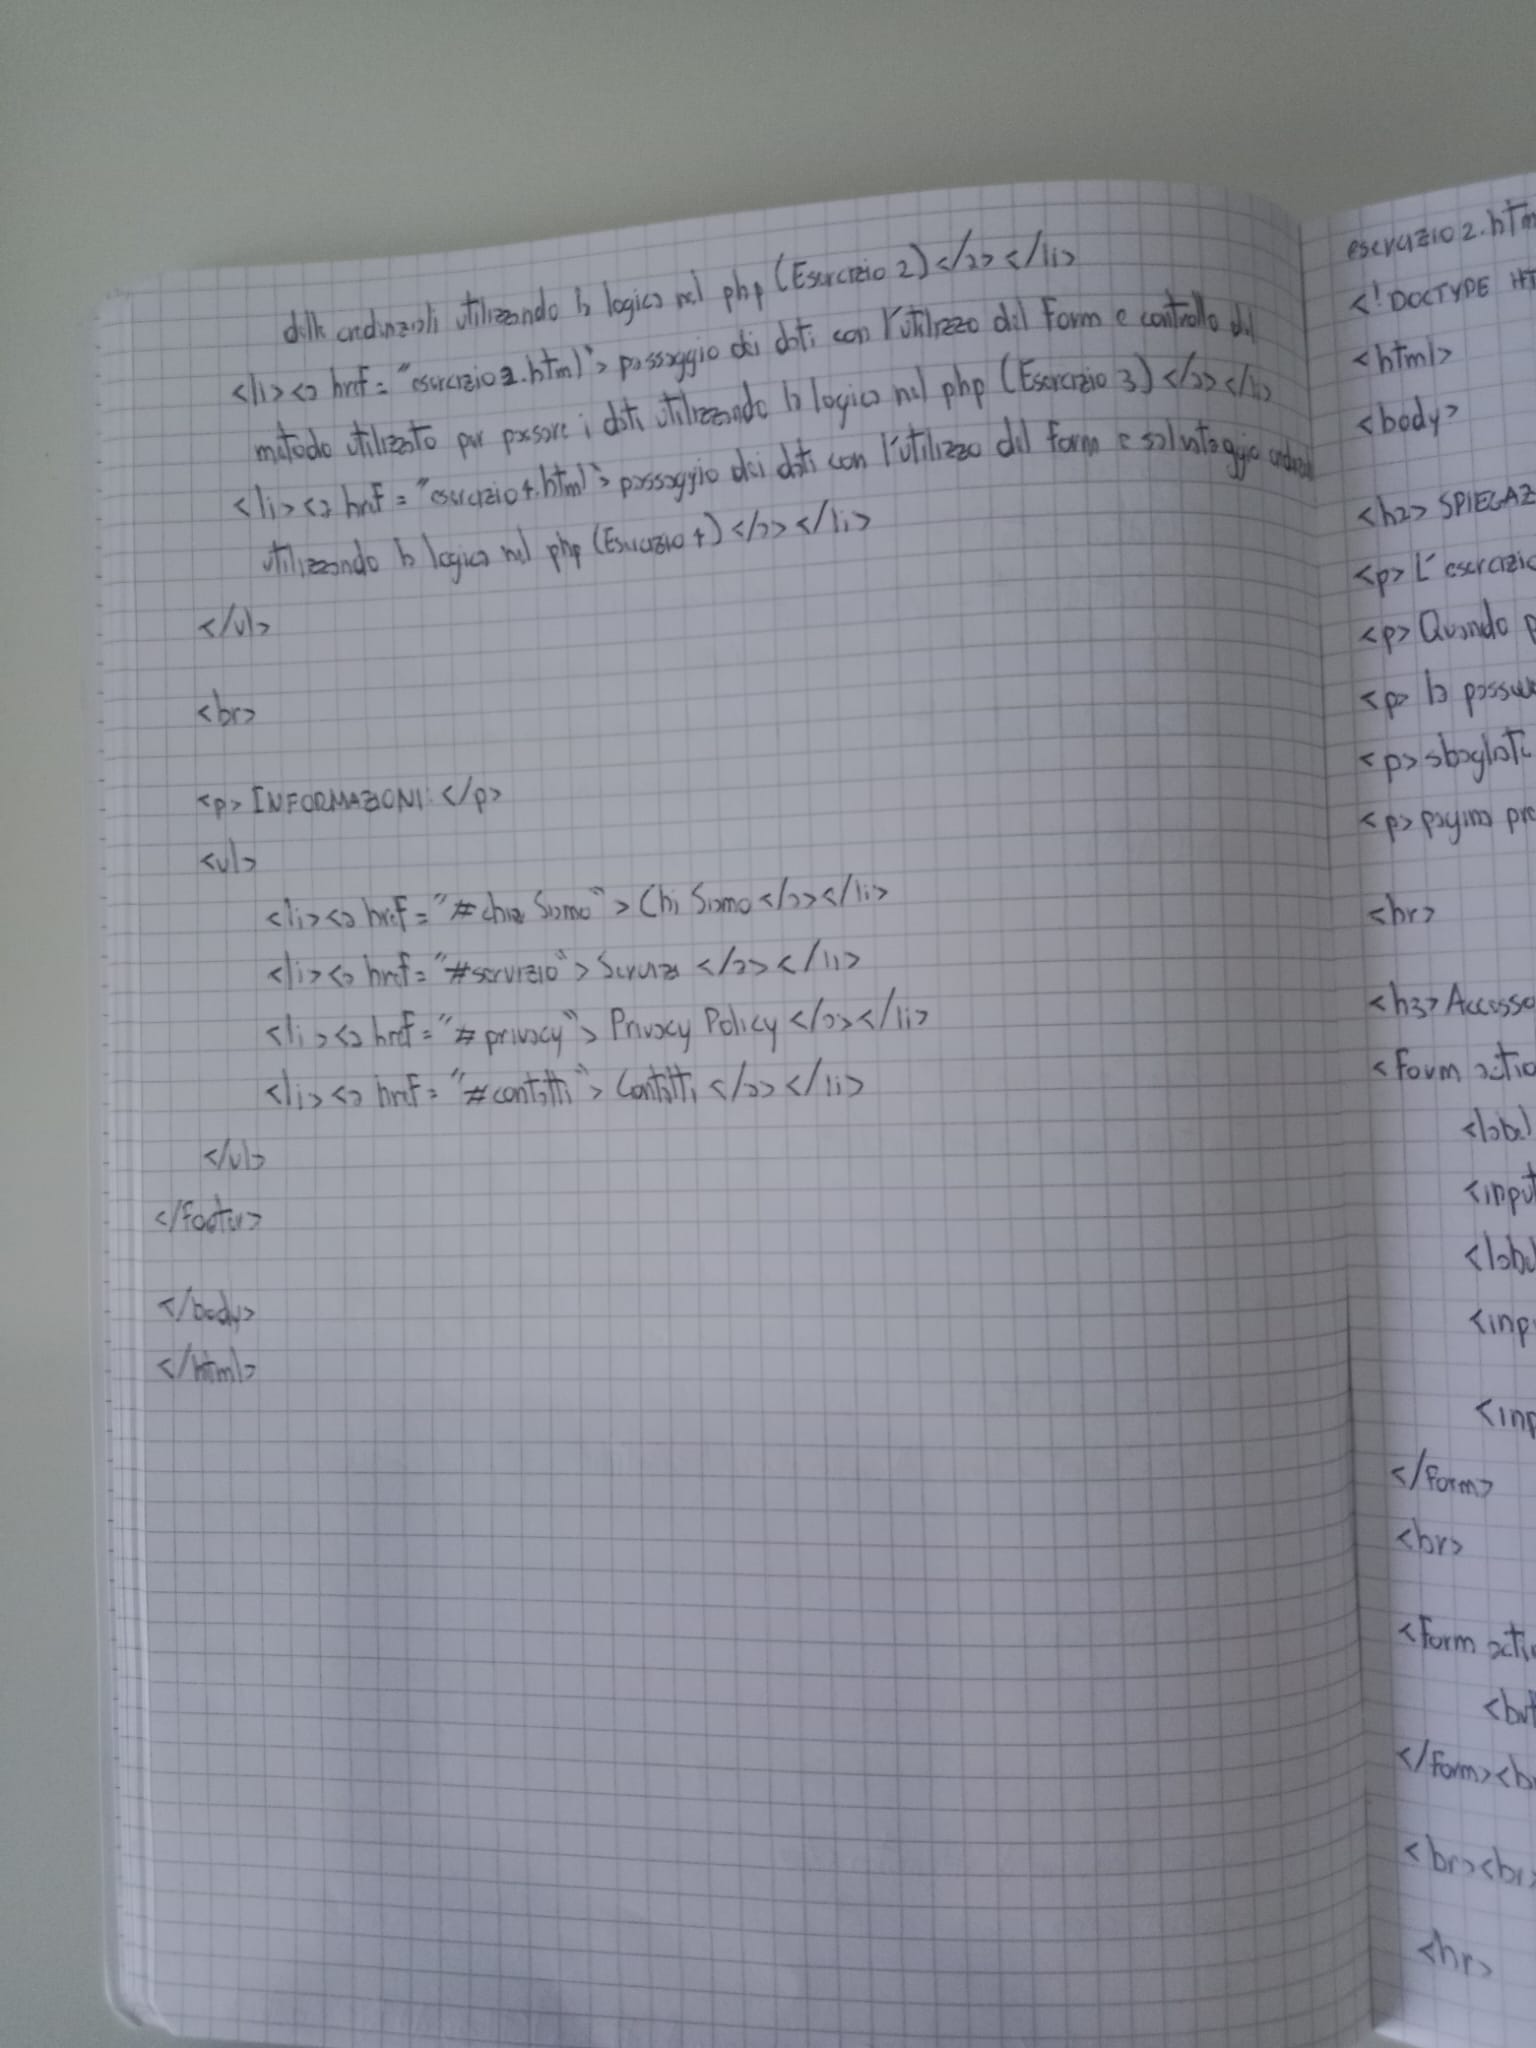 delle credenziali utilizzando la logica nel php (Esercizio 2)</a></li>
<li><a href="esercizio2.html"> passaggio dei dati con l'utilizzo del form e controllo del
metodo utilizzato per passare i dati utilizzando la logica nel php (Esercizio 3)</a></li>
<li><a href="esercizio4.html"> passaggio dei dati con l'utilizzo del form e salvataggio
utilizzando la logica nel php (Esercizio 4)</a></li>
</ul>
<br>
<p>INFORMAZIONI:</p>
<ul>
<li><a href="#chi Siamo">Chi Siamo</a></li>
<li><a href="#servizio">Servizi</a></li>
<li><a href="#privacy">Privacy Policy</a></li>
<li><a href="#contatti">Contatti</a></li>
</ul>
</footer>
</body>
</html>
esercizio2.htm
<!DOCTYPE HT
<html>
<body>
<h2> SPIEGAZ
<p> L'esercizio
<p> Quando p
<p> la passw
<p> sbagliati
<p> pagina pre
<hr>
<h3> Accesso
<form actio
<label
<input
<labe
<inp
<inp
</form>
<br>
<form actio
<but
</form><br
<br><br>
<hr>